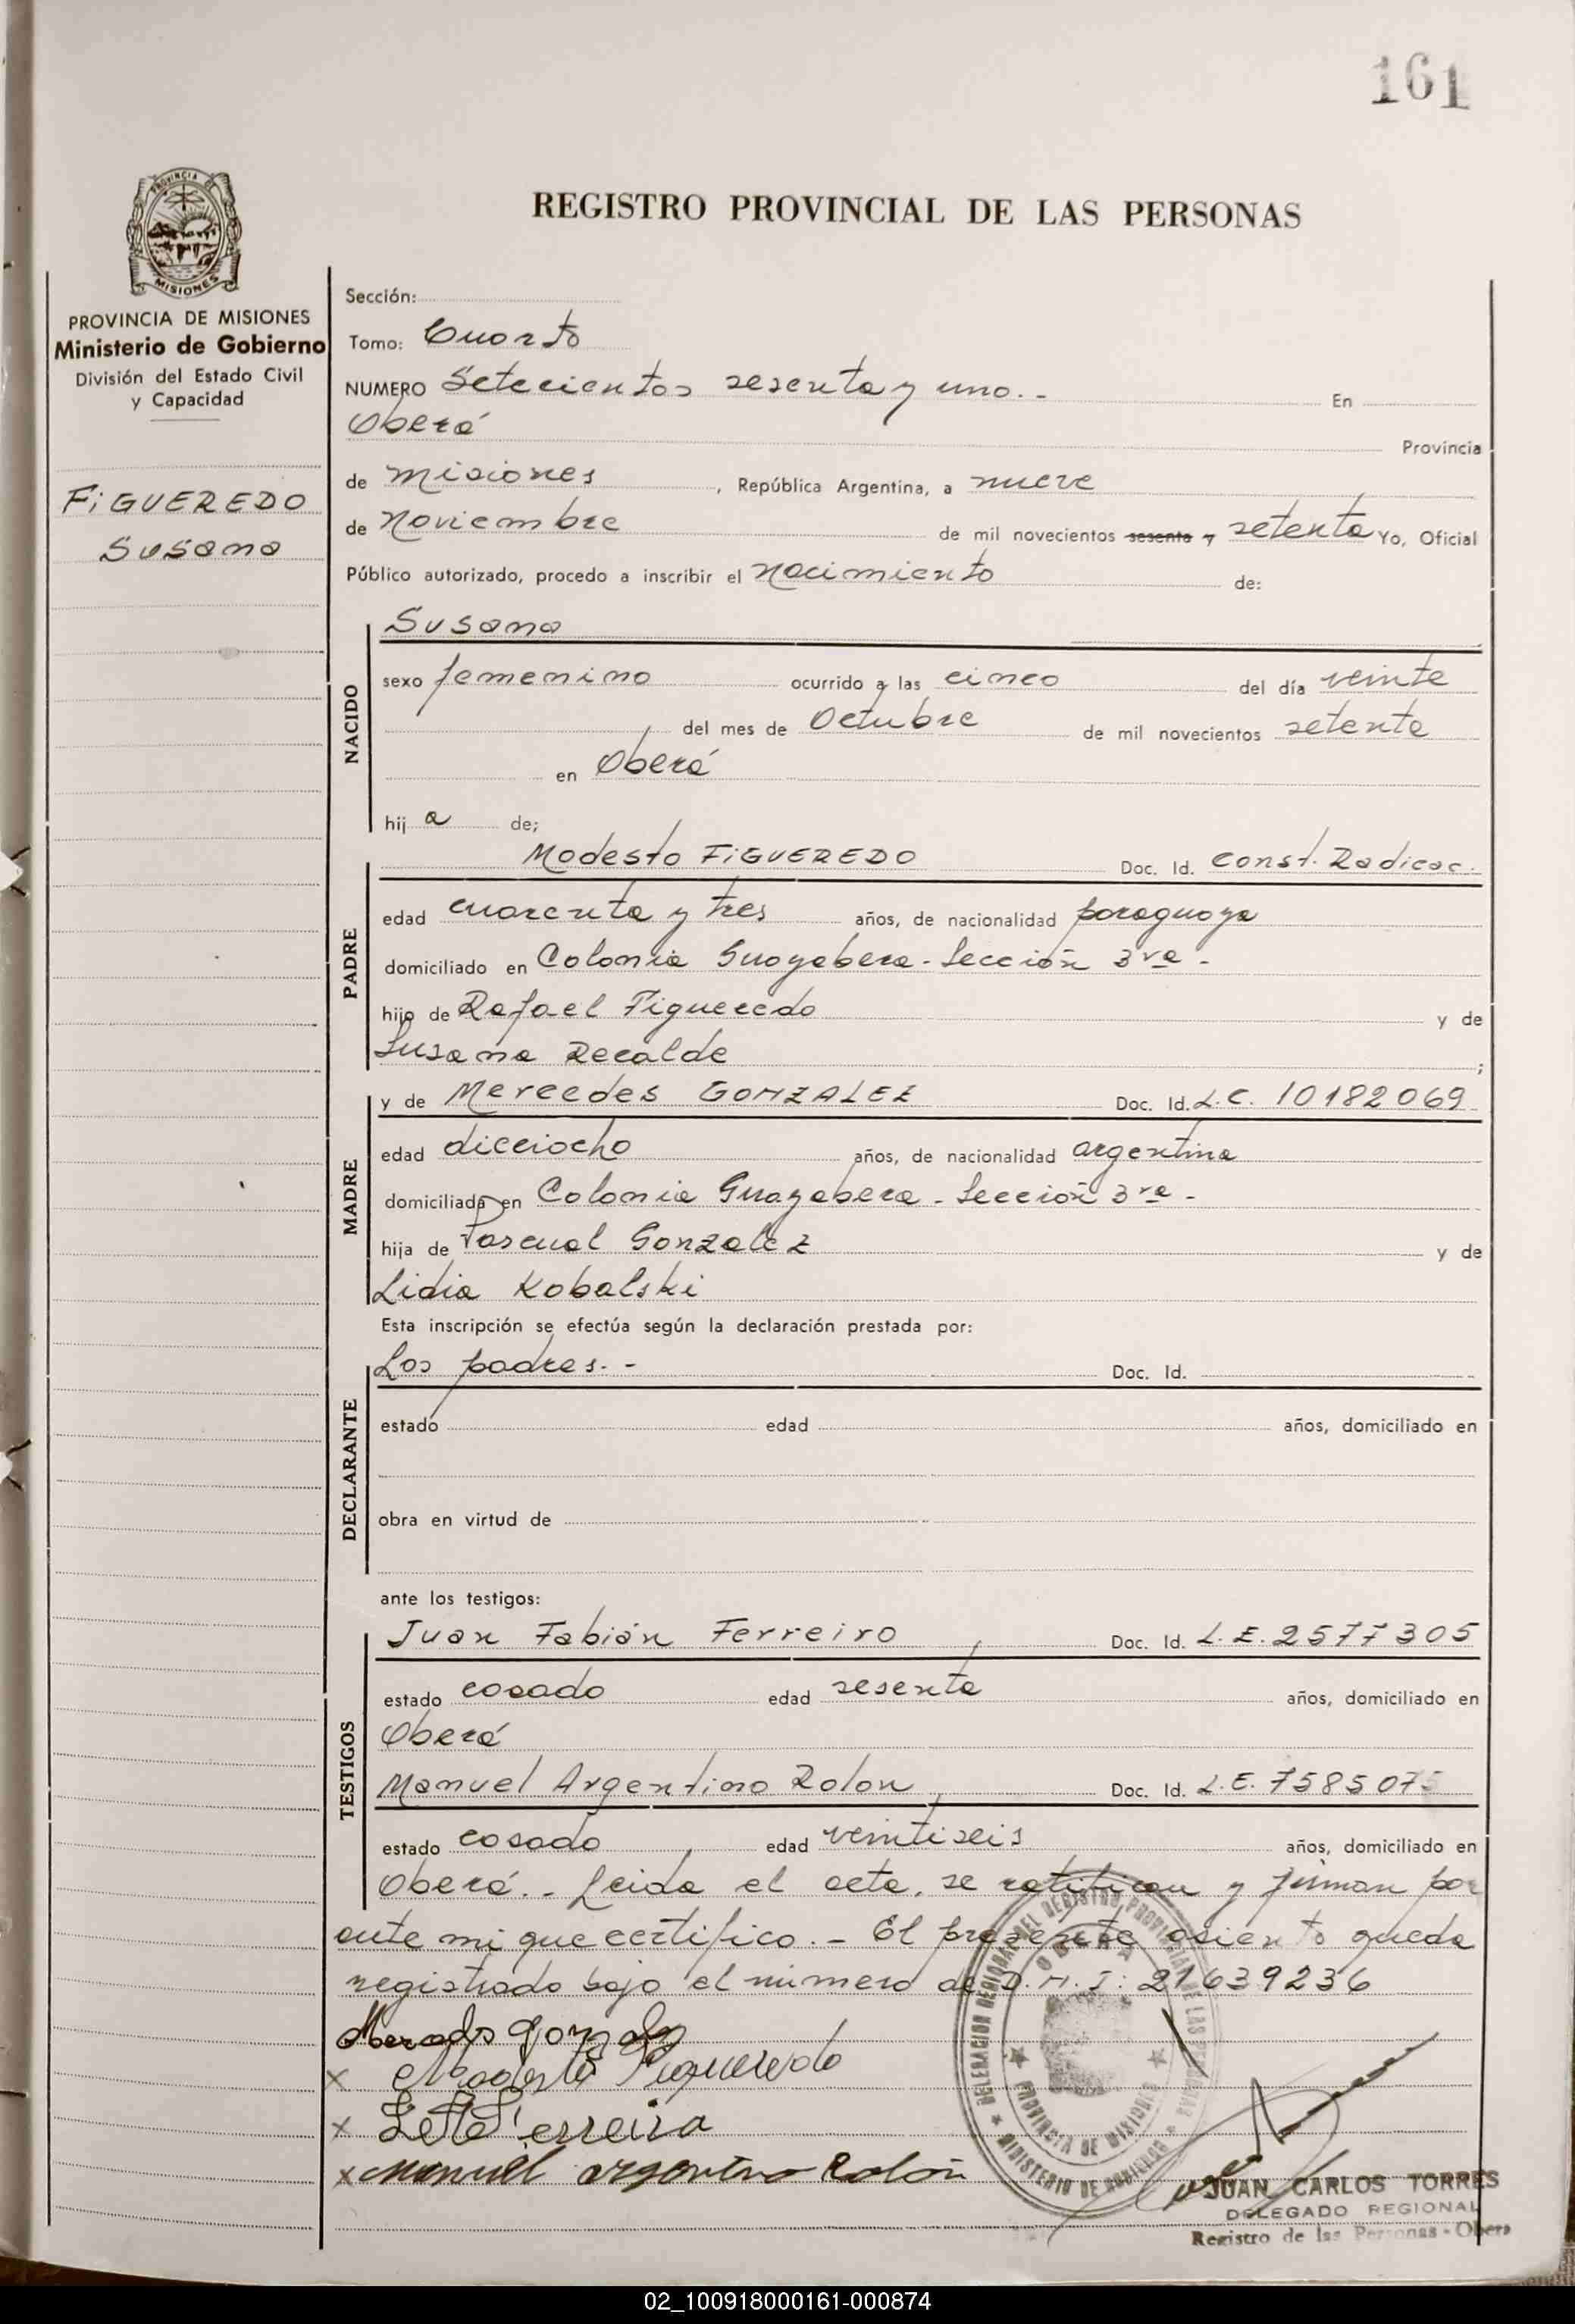 161
PROVINCIA DE
MISIONES
REGISTRO PROVINCIAL DE LAS PERSONAS
PROVINCIA DE MISIONES
Ministerio de Gobierno
División del Estado Civil
y Capacidad
FIGUEREDO
Susana
Sección:
Tomo: Cuarto
NUMERO Setecientos sesenta y uno.- En
Oberá Provincia
de Misiones, República Argentina, a nueve
de Noviembre de mil novecientos sesenta y setenta Yo, Oficial
Público autorizado, procedo a inscribir el nacimiento de:
NACIDO
Susana
sexo femenino ocurrido a las cinco del día veinte
del mes de Octubre de mil novecientos setenta
en Oberá
hij a de;
PADRE
Modesto FIGUEREDO Doc. Id. Const. Radicac.
edad cuarenta y tres años, de nacionalidad paraguaya
domiciliado en Colonia Guayabera - Sección 3ra -
hijo de Rafael Figueredo y de
Susana Recalde ;
MADRE
y de Mercedes GONZALEZ Doc. Id. L.C. 10182069
edad dieciocho años, de nacionalidad argentina
domiciliada en Colonia Guayabera - Sección 3ra -
hija de Pascual Gonzalez y de
Lidia Kobalski
Esta inscripción se efectúa según la declaración prestada por:
DECLARANTE
Los padres.- Doc. Id.
estado edad años, domiciliado en
obra en virtud de
ante los testigos:
TESTIGOS
Juan Fabián Ferreiro Doc. Id. L.E. 2577305
estado casado edad sesenta años, domiciliado en
Oberá
Manuel Argentino Rolon Doc. Id. L.E. 7585075
estado casado edad veintiseis años, domiciliado en
Oberá.- Leida el acta, se ratifican y firman por
ante mi que certifico.- El presente asiento queda
registrado bajo el número de D.N.I: 21639236
Mercedes Gonzalez
x Modesto Figueredo
x Ferreira
x Manuel argentino Rolón
DELEGACION REGIONAL DEL REGISTRO PROVINCIAL DE LAS PERSONAS
OBERA
PROVINCIA DE MISIONES
MINISTERIO DE GOBIERNO
JUAN CARLOS TORRES
DELEGADO REGIONAL
Registro de las Personas - Obera
02_100918000161-000874